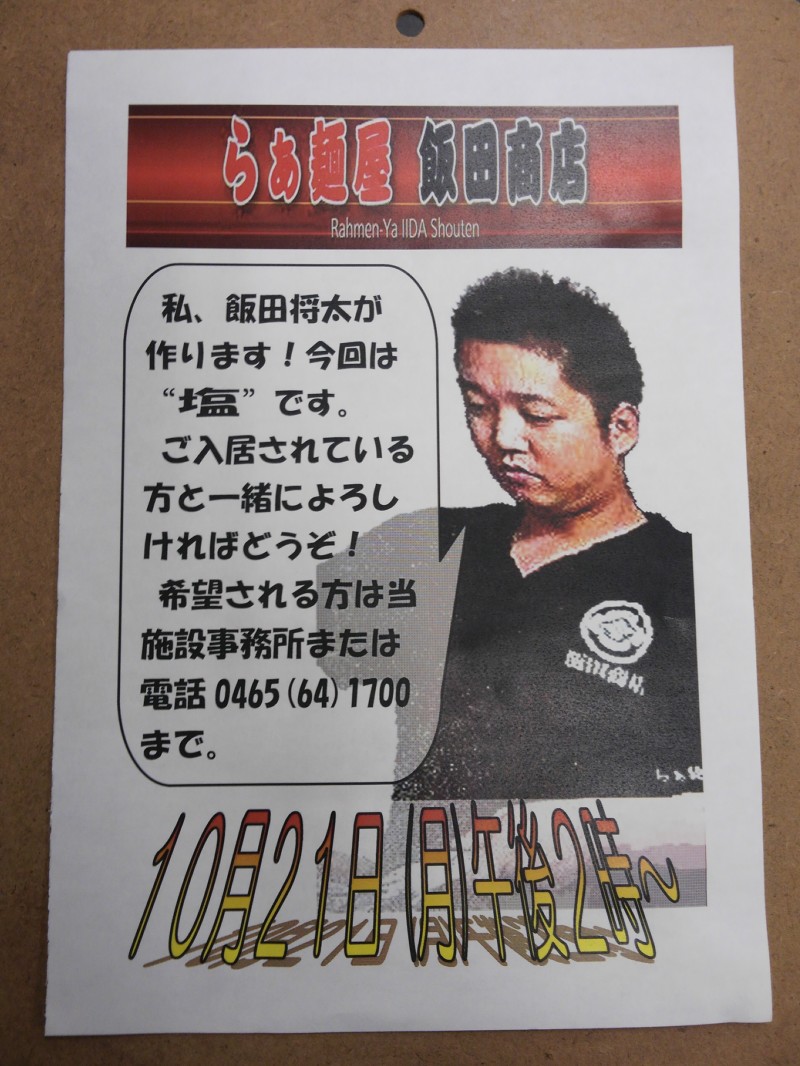 らぁ麺屋 飯田商店
Rahmen-Ya IIDA Shouten
私、飯田将太が
作ります！今回は
“塩”です。
ご入居されている
方と一緒によろし
ければどうぞ！
希望される方は当
施設事務所または
電話0465(64)1700
まで。
飯田商店
らぁ麺
10月21日(月)午後2時～